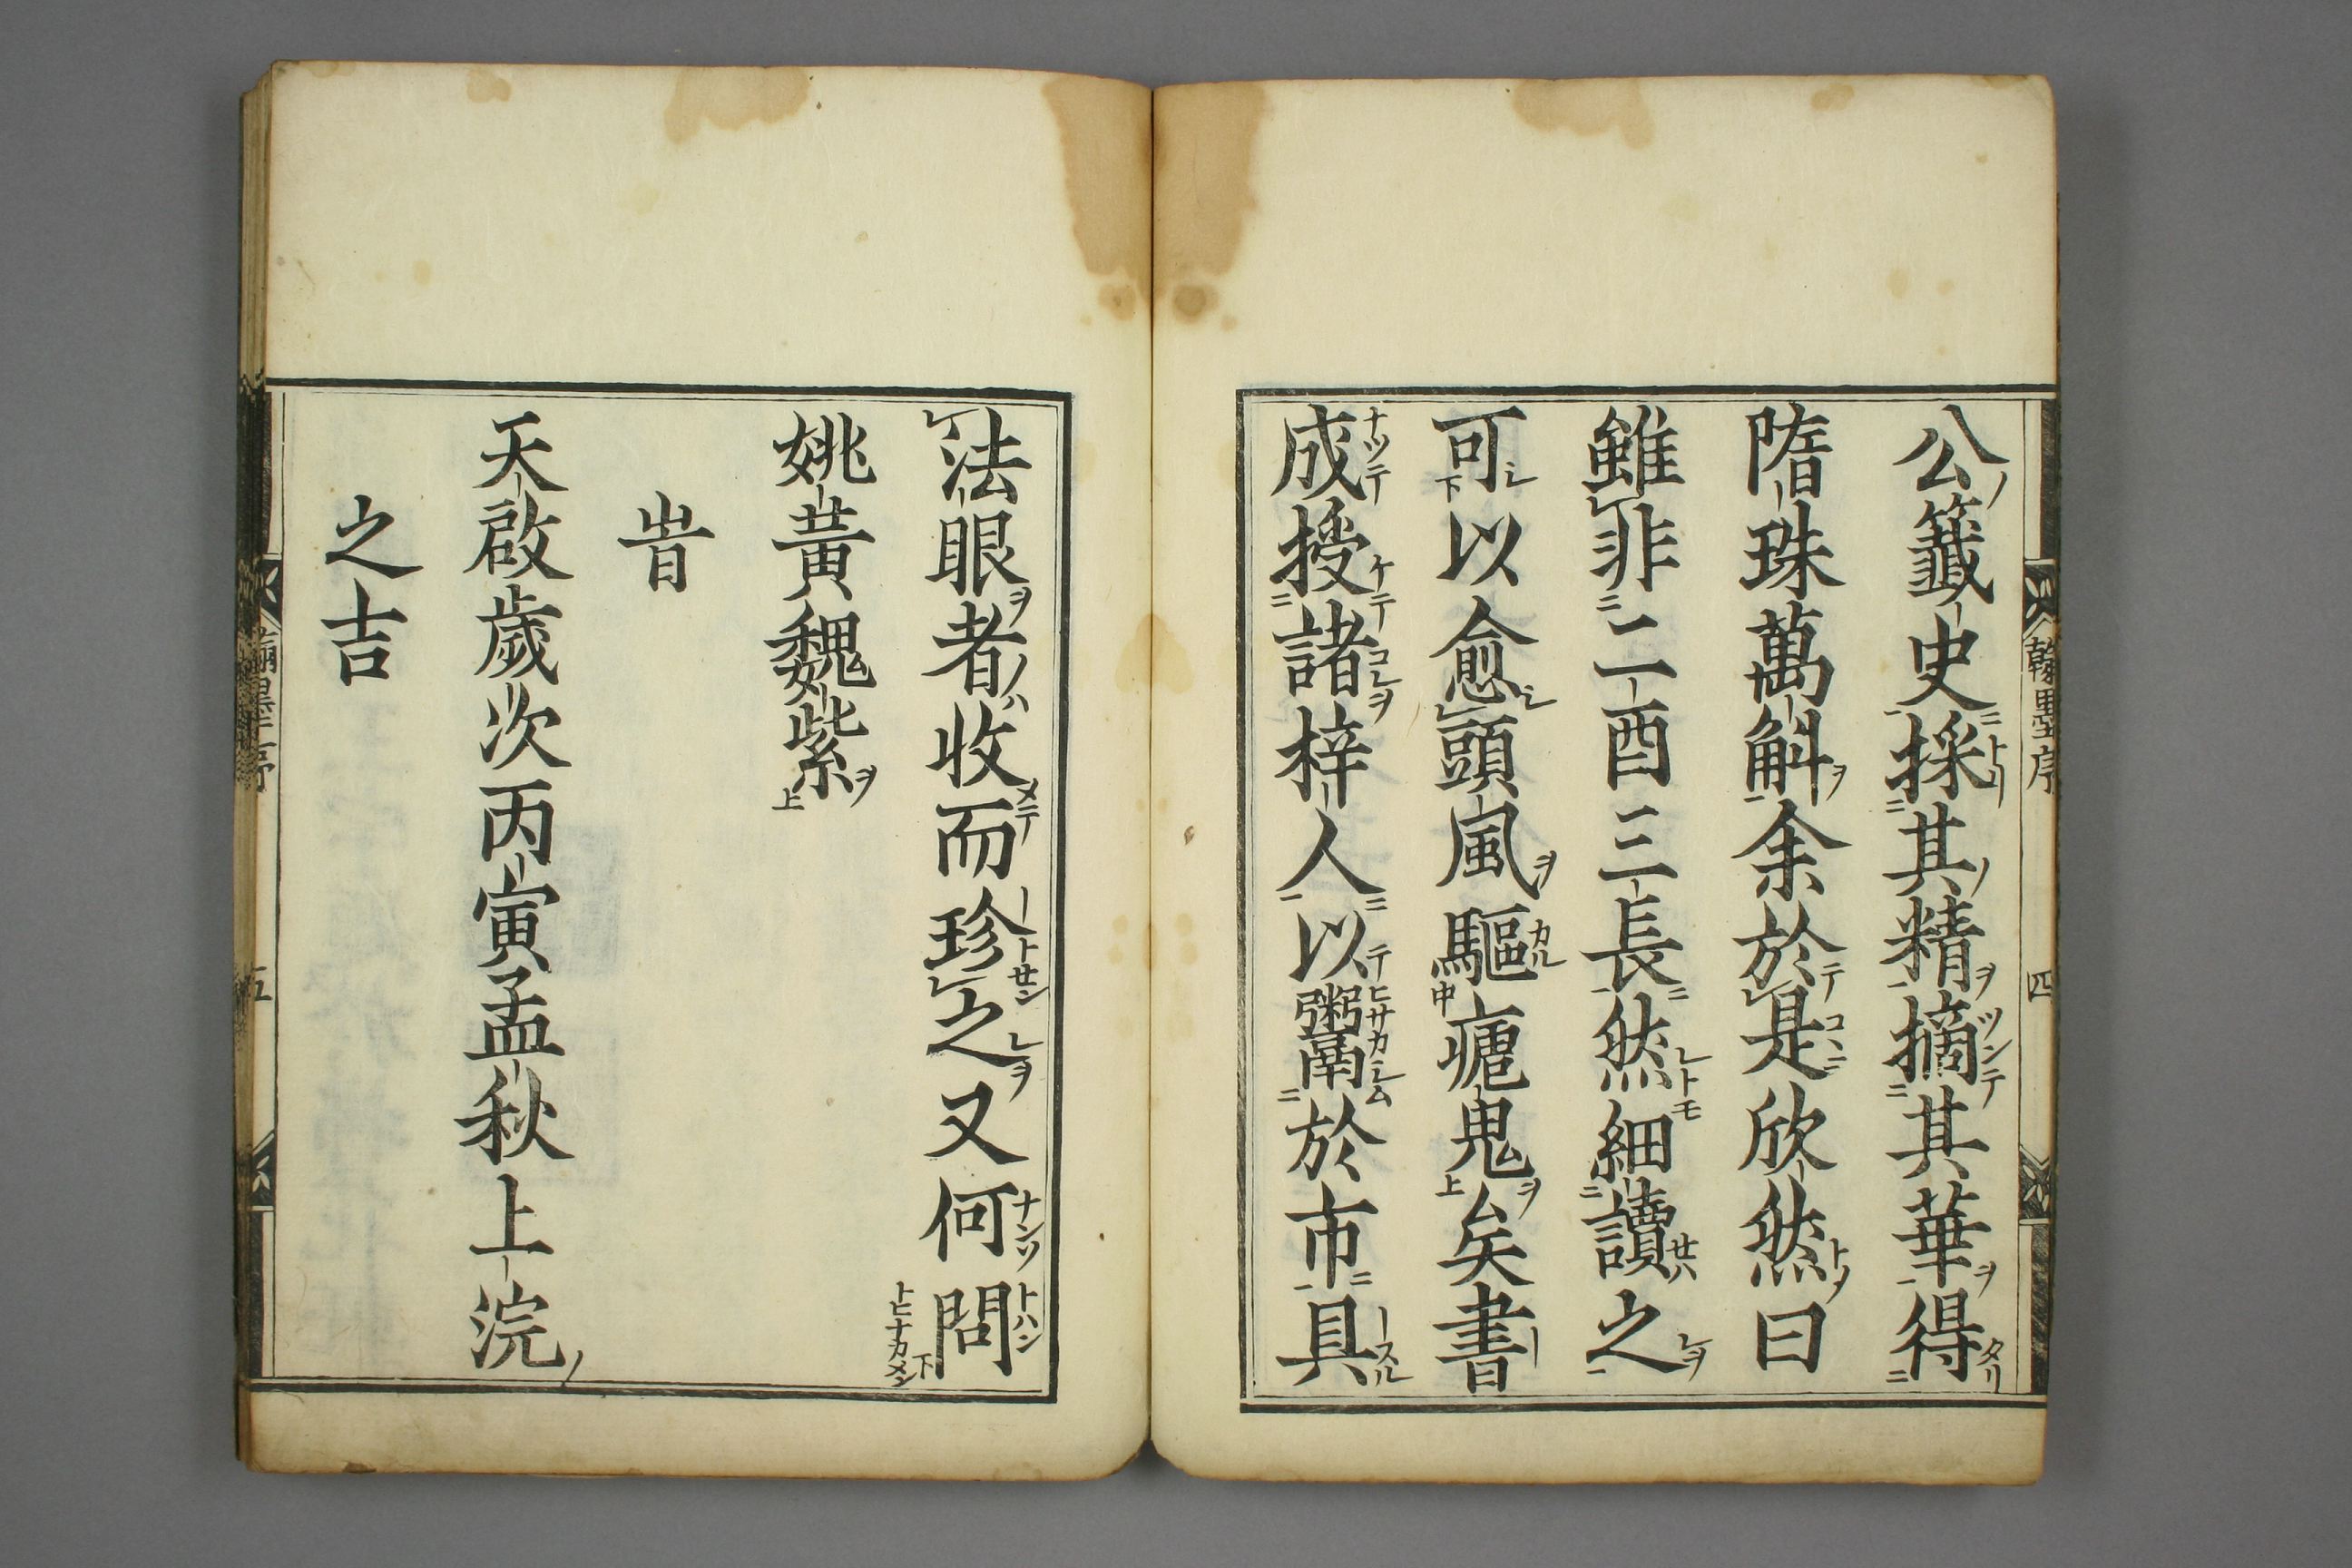 公籤史採其精摘其華得
隋珠萬斛余於是欣然曰
雖非二酉三長然細讀之
可以愈頭風驅瘧鬼矣書
成授諸梓人以鬻於市具
法眼者收而珍之又何問
姚黃魏紫
旹
天啟歲次丙寅孟秋上浣
之吉
翰墨序
四
五